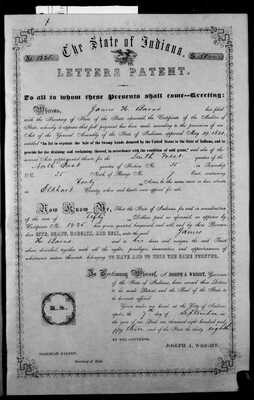 The State of Indiana.
LETTERS PATENT.
To all to whom these Presents shall come—Greeting:
Whereas, James H. has filed
with the Secretary of State of the State aforesaid the Certificate of the Auditor of
State, whereby it appears that full payment has been made according to the provisions of an
Act of the General Assembly of the State of Indiana, approved May 29, 1852,
entitled "An Act to regulate the sale of the Swamp Lands donated by the United States to the State of Indiana, and to
provide for the draining and reclaiming thereof, in accordance with the condition of said grant,"
South West quarter of the
quarter of Section No. 35 in Township
No. 35 North of Range No. East, containing
Acres,
County, when said lands were offered for sale.
Now Know Ye, That the State of Indiana, for and in consideration
of the sum of Fifty Dollars paid as aforesaid, as appears by
Certificate No. 1036 has given granted bargained and sold and by these Presents
does GIVE, GRANT, BARGAIN, AND SELL, unto the said James
H. and to his heirs and assigns the said Tract
above described, together with all the rights, privileges, immunities, and appurtenances of
whatsoever nature thereunto belonging TO HAVE AND TO HOLD THE SAME FOREVER.
In Testimony Whereof, I, JOSEPH A. WRIGHT, Governor
of the State of Indiana, have caused these Letters
to be made Patent, and the Seal of the State to
be hereunto affixed.
Given under my hand, at the City of Indianapolis,
the day of September in
the year of our Lord one thousand eight hundred and
fifty three and of the State the thirty eighth
BY THE GOVERNOR,
JOSEPH A. WRIGHT.
Secretary of State.